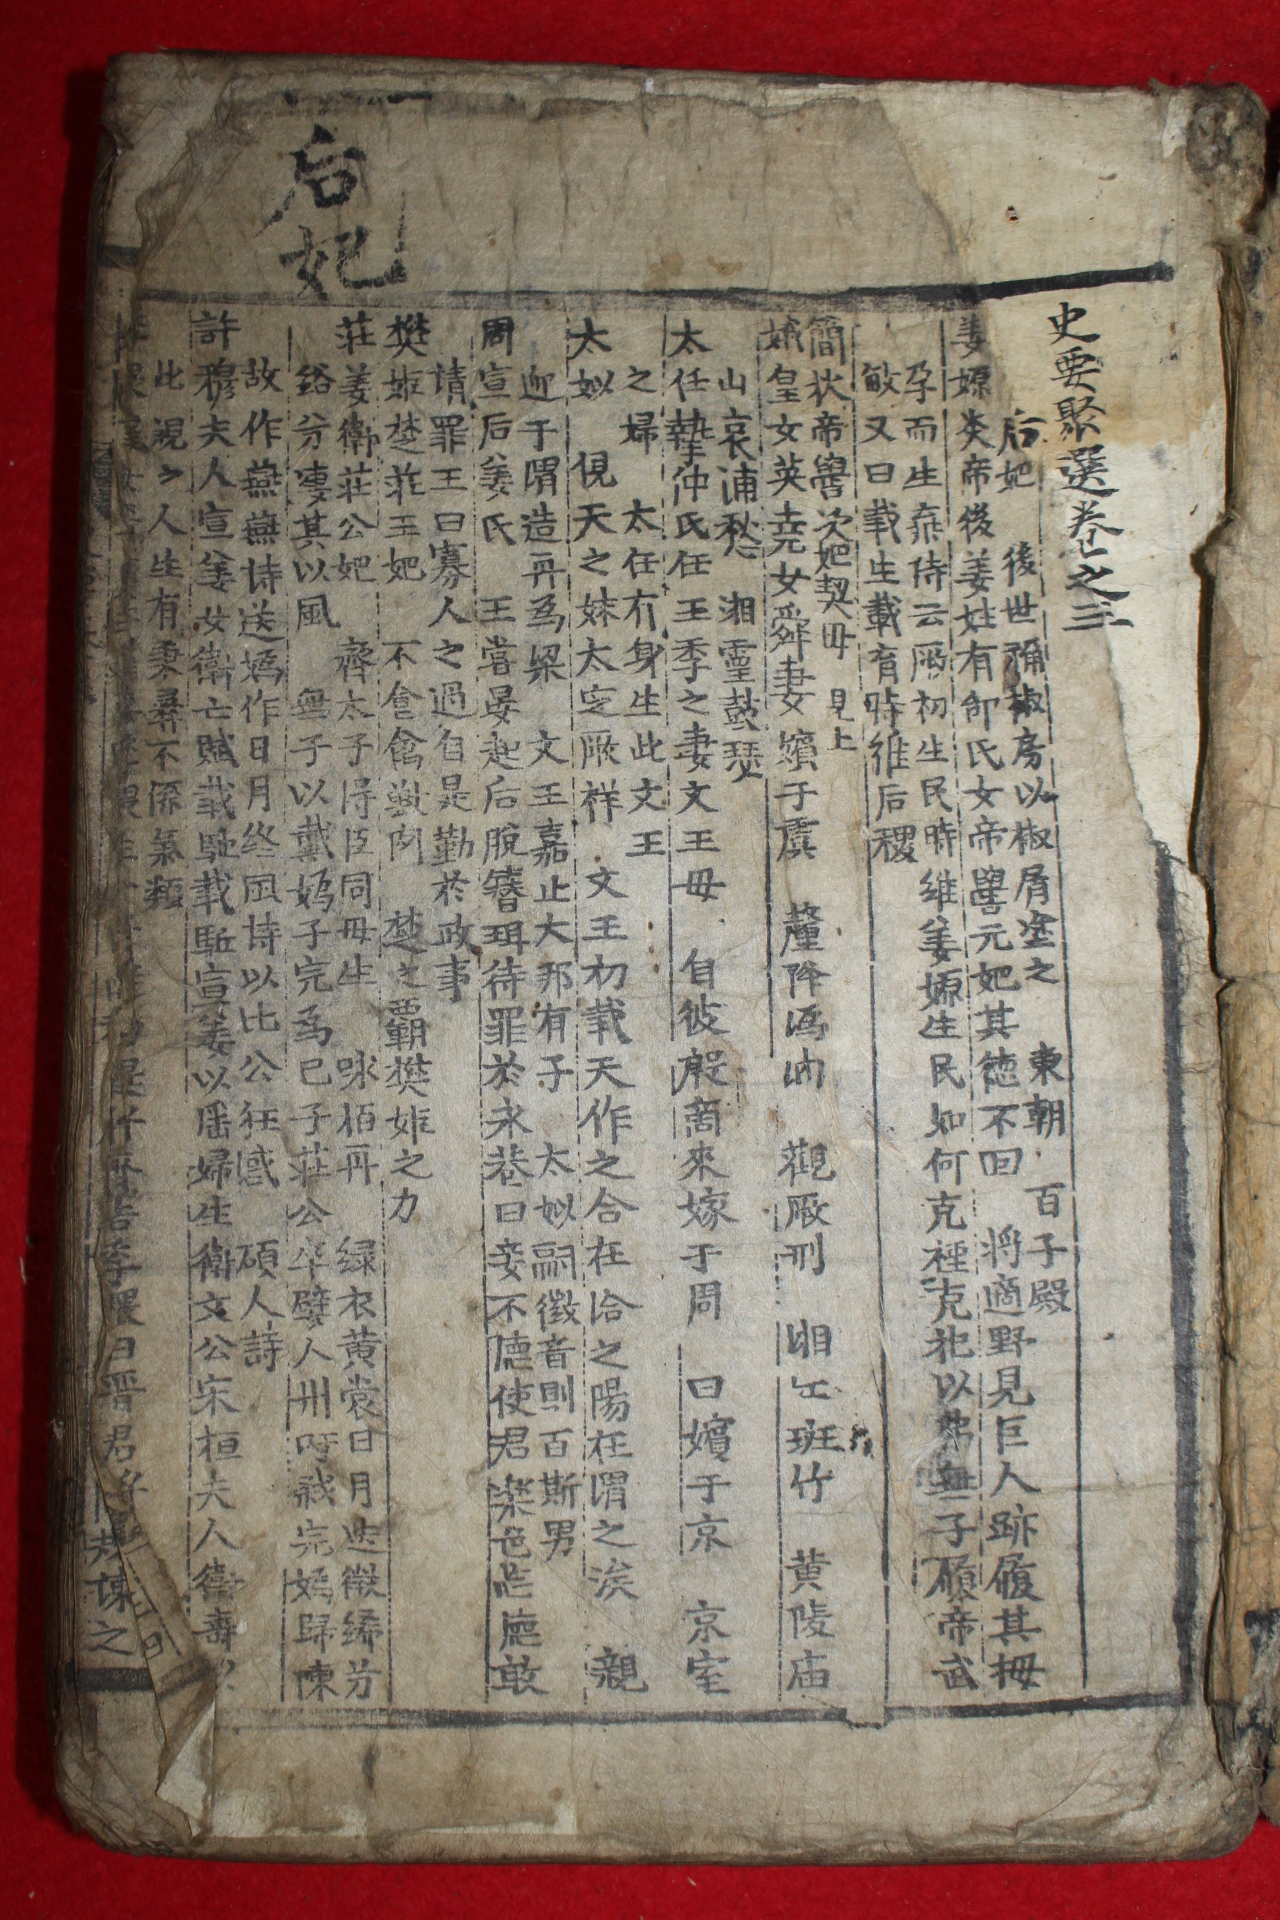 后妃
史要聚選卷之三
后妃 後世稱椒房以椒屑塗之 東朝 百子殿
姜嫄炎帝後姜姓有邰氏女帝嚳元妃其德不回 將適野見巨人跡履其拇
孕而生棄詩云厥初生民時維姜嫄生民如何克禋克祀以弗無子履帝武
敏又曰載生載育時維后稷
簡狄帝嚳次妃契母 見上
娥皇女英堯女舜妻嬪于虞 釐降溈汭 觀厥刑 湘江班竹 黃陵庙
山哀浦愁 湘靈鼓瑟
太任摯仲氏任王季之妻文王母 自彼殷商來嫁于周 曰嬪于京 京室
之婦 太任有身生此文王
太姒 俔天之妹太定厥祥 文王初載天作之合在洽之陽在渭之涘 親
迎于渭造舟爲梁 文王嘉止大邦有子 太姒嗣徽音則百斯男
周宣后姜氏 王嘗晏起后脫簪珥待罪於永巷曰妾不德使君樂色忘德敢
請罪王曰寡人之過自是勤於政事
樊姬楚莊王妃 不食禽獸肉 楚之霸樊姬之力
莊姜衛莊公妃 齊太子得臣同母生 咏柏舟 緑衣黃裳日月迭微絺兮
綌兮凄其以風 無子以戴嬀子完爲己子莊公卒嬖人州吁弑完嬀歸陳
故作燕燕詩送嬀作日月終風詩以比公狂惑 碩人詩
許穆夫人宣姜女衛亡賦載馳載駈宣姜以淫婦生衛文公宋桓夫人衛壽
此觀之人生有秉彛不係氣類
季隗曰晋君
諫之